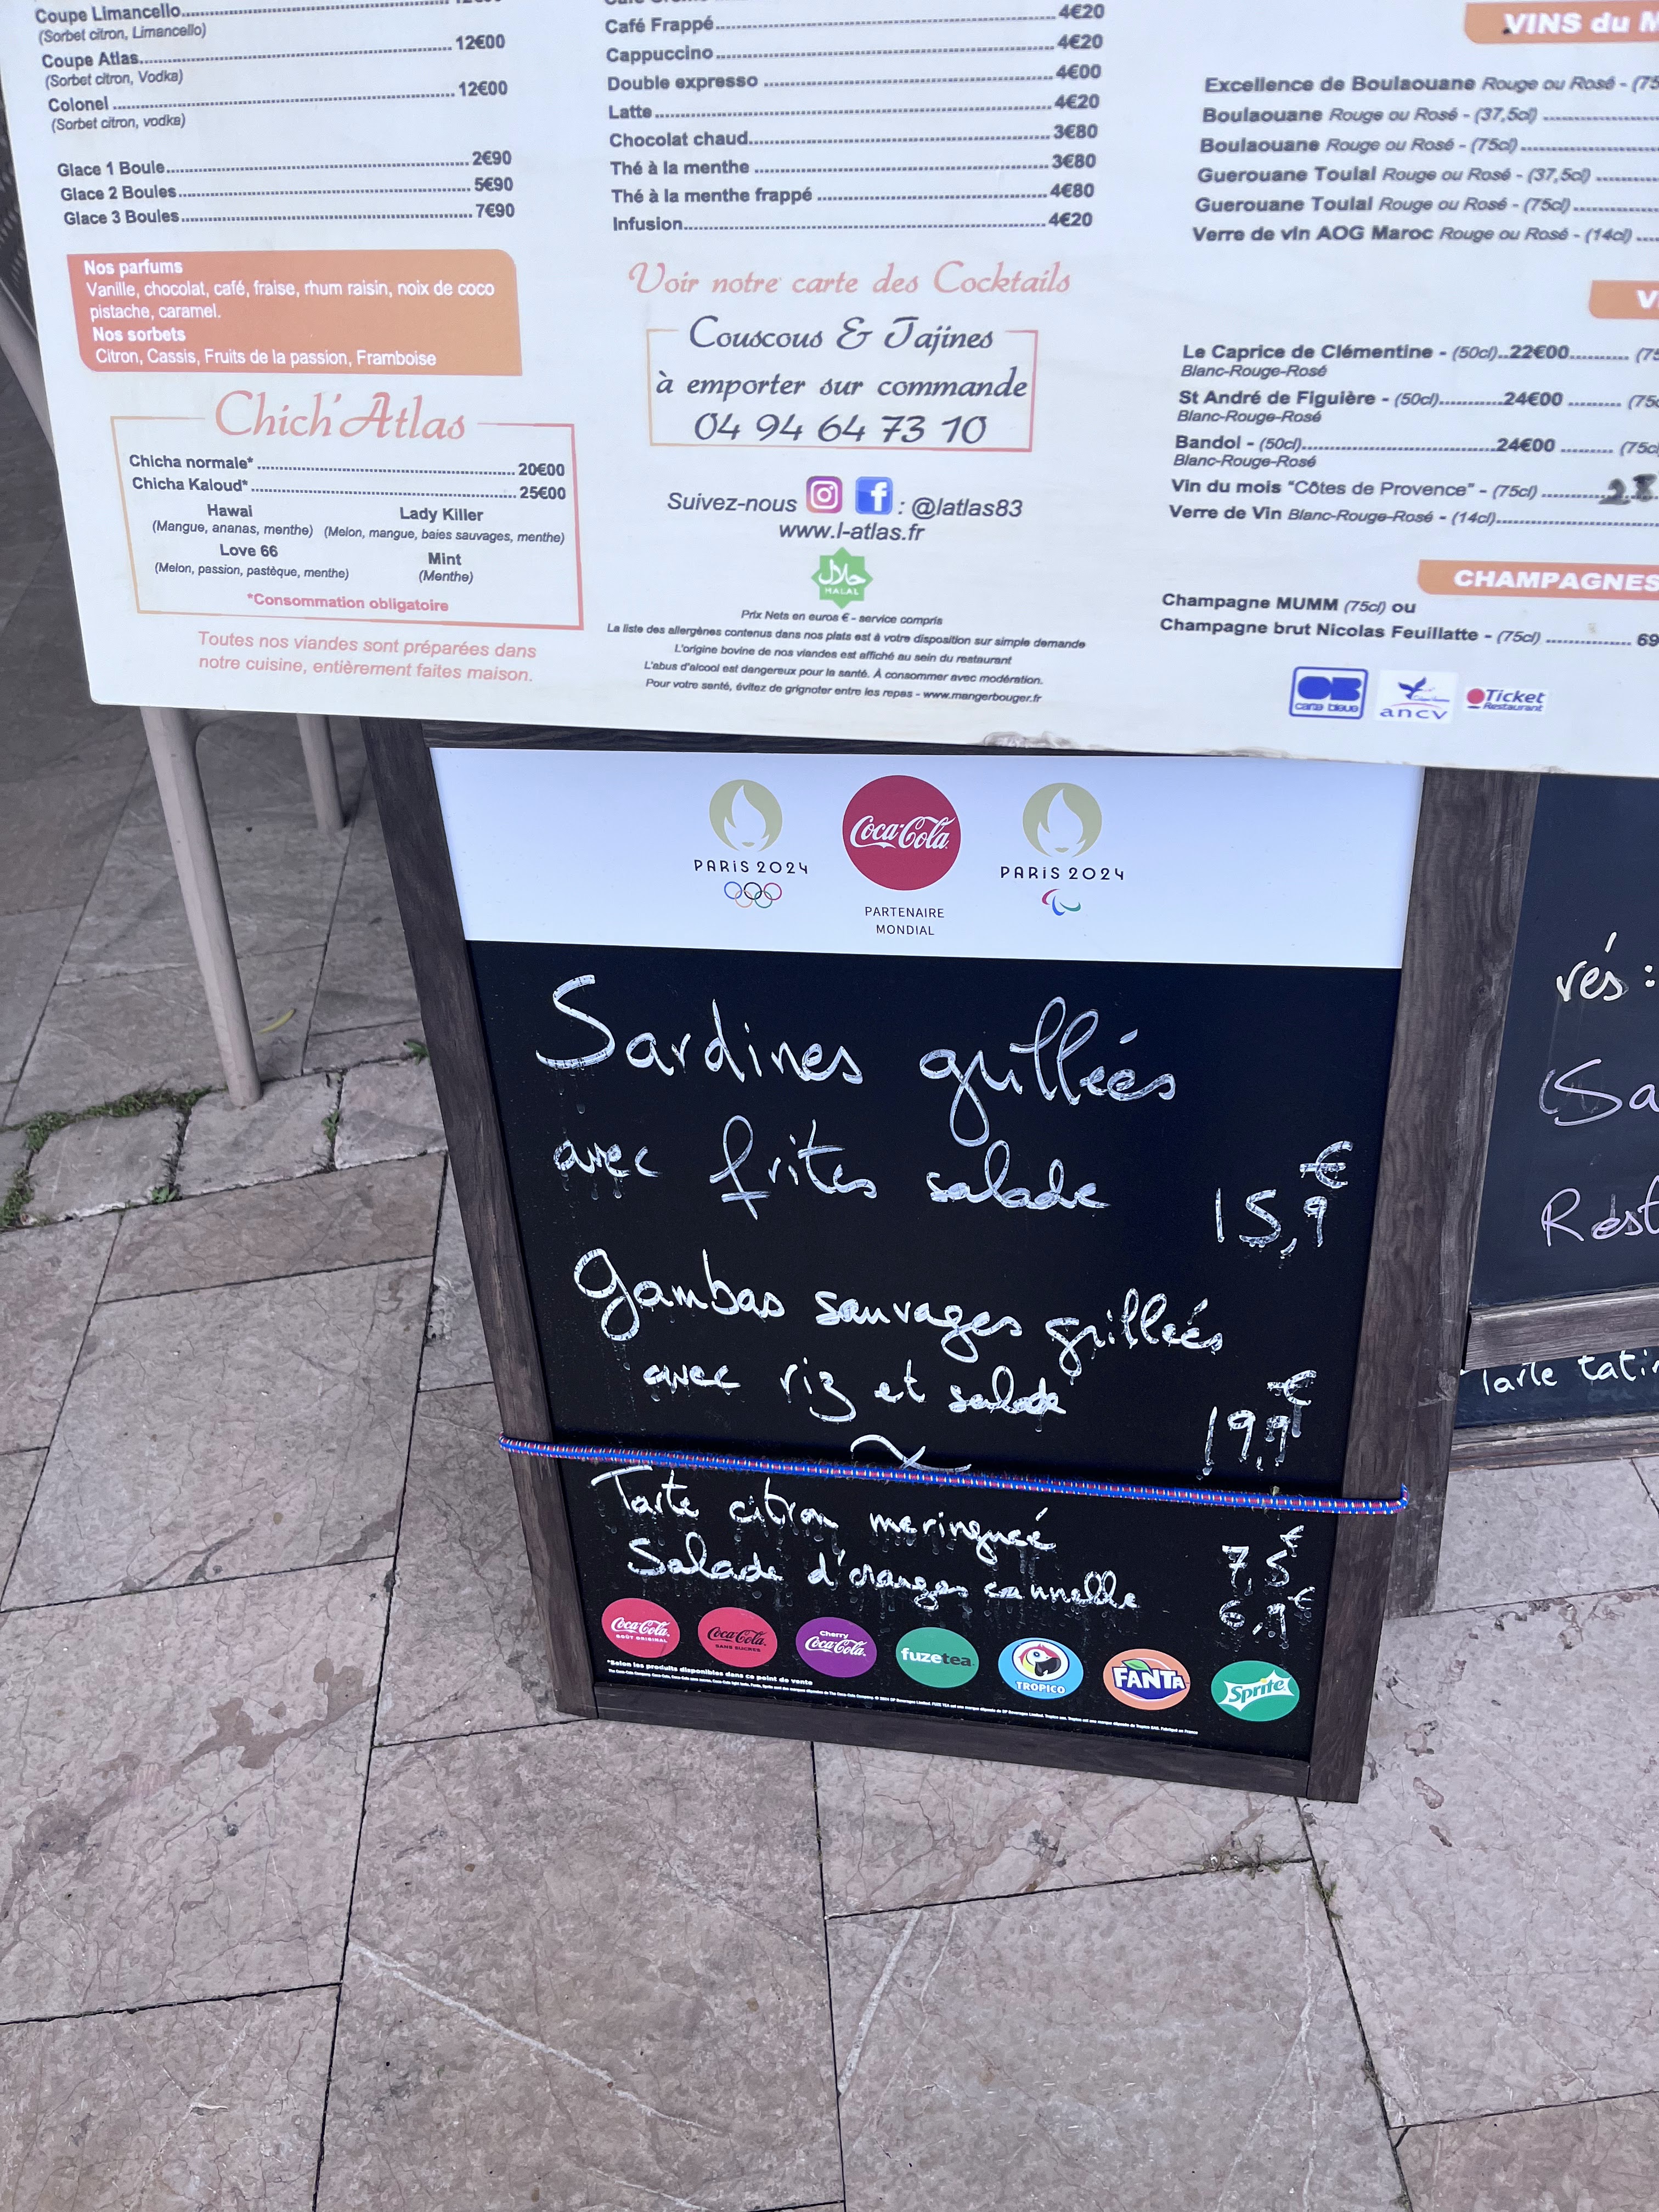 Coupe Limancello
(Sorbet citron, Limancello)
Coupe Atlas 12€00
(Sorbet citron, Vodka)
Colonel 12€00
(Sorbet citron, vodka)
Glace 1 Boule 2€90
Glace 2 Boules 5€90
Glace 3 Boules 7€90
Nos parfums
Vanille, chocolat, café, fraise, rhum raisin, noix de coco
pistache, caramel.
Nos sorbets
Citron, Cassis, Fruits de la passion, Framboise
Chich'Atlas
Chicha normale* 20€00
Chicha Kaloud* 25€00
Hawai
(Mangue, ananas, menthe)
Lady Killer
(Melon, mangue, baies sauvages, menthe)
Love 66
(Melon, passion, pastèque, menthe)
Mint
(Menthe)
*Consommation obligatoire
Toutes nos viandes sont préparées dans
notre cuisine, entièrement faites maison.
4€20
Café Frappé 4€20
Cappuccino 4€00
Double expresso 4€20
Latte 3€80
Chocolat chaud 3€80
Thé à la menthe 4€80
Thé à la menthe frappé 4€20
Infusion
Voir notre carte des Cocktails
Couscous & Tajines
à emporter sur commande
04 94 64 73 10
Suivez-nous : @latlas83
www.l-atlas.fr
حلال
HALAL
Prix Nets en euros € - service compris
La liste des allergènes contenus dans nos plats est à votre disposition sur simple demande
L'origine bovine de nos viandes est affiché au sein du restaurant
L'abus d'alcool est dangereux pour la santé. À consommer avec modération.
Pour votre santé, évitez de grignoter entre les repas - www.mangerbouger.fr
VINS du M
Excellence de Boulaouane Rouge ou Rosé - (75
Boulaouane Rouge ou Rosé - (37,5cl)
Boulaouane Rouge ou Rosé - (75cl)
Guerouane Toulal Rouge ou Rosé - (37,5cl)
Guerouane Toulal Rouge ou Rosé - (75cl)
Verre de vin AOG Maroc Rouge ou Rosé - (14cl)
V
Le Caprice de Clémentine - (50cl)..22€00 (75
Blanc-Rouge-Rosé
St André de Figuière - (50cl) 24€00 (75c
Blanc-Rouge-Rosé
Bandol - (50cl) 24€00 (75cl
Blanc-Rouge-Rosé
Vin du mois "Côtes de Provence" - (75cl)
Verre de Vin Blanc-Rouge-Rosé - (14cl)
CHAMPAGNES
Champagne MUMM (75cl) ou
Champagne brut Nicolas Feuillatte - (75cl) 69
CB
carte bleue
ancv
Ticket
Restaurant
PARIS 2024
Coca-Cola
PARTENAIRE
MONDIAL
PARIS 2024
Sardines grillées
avec frites salade 15,9€
Gambas sauvages grillées
avec riz et salade 19,9€
Tarte citron meringuée 7,5€
Salade d'oranges cannelle 6,9€
Coca-Cola GOÛT ORIGINAL
Coca-Cola SANS SUCRES
Cherry Coca-Cola
fuzetea
TROPICO
FANTA
Sprite
*Selon les produits disponibles dans ce point de vente
rés :
(Sa
Rest
Tarte tatin